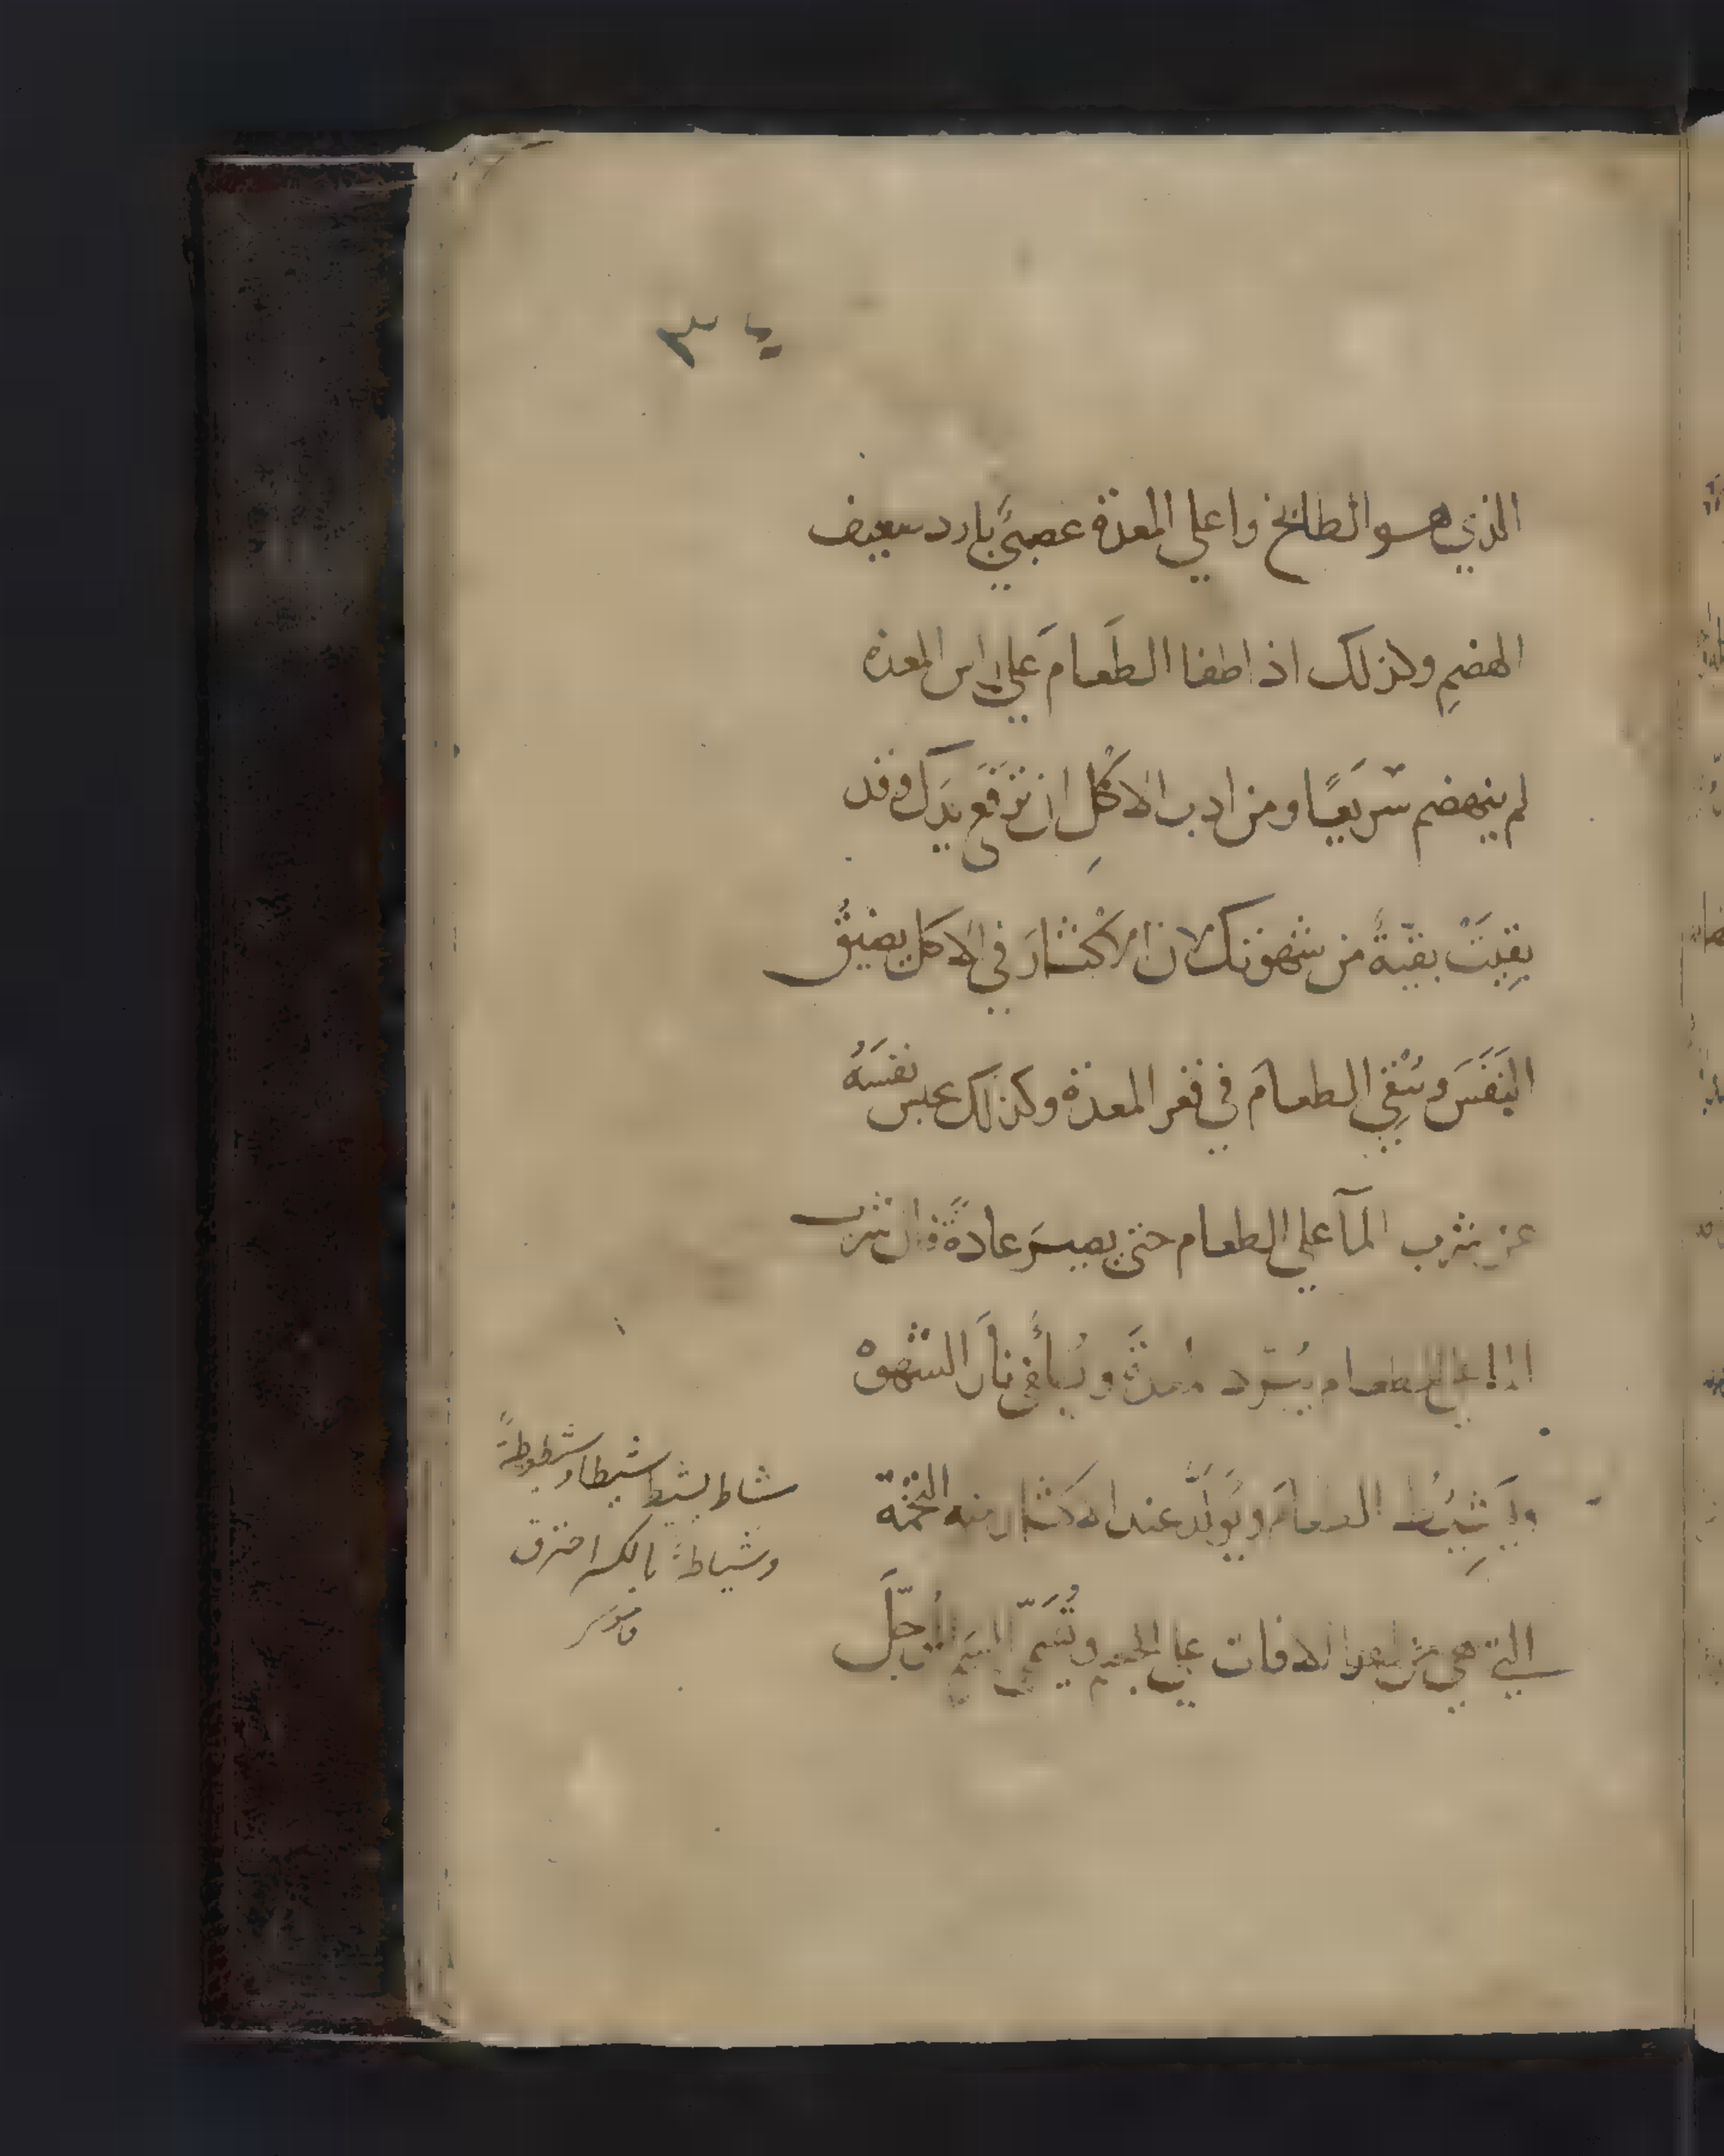 ٣
الذي هو الطابخ واعلي المعدة عصبيٌّ بارد ضعيف
الهضمِ وكذلك اذا طفا الطَعامَ علي راس المعده
لم ينهضم سَريعًا ومن ادب الاكْلِ ان تَرفَعَ يَدَكَ وقد
بقِيَتْ بقيّةٌ من شهوتك لان الاكْثارَ في الاكل يضيقُ
النَفَسَ ويُبْقِي الطعامَ في قعر المعدة وكذلك يحبس نفسَهُ
عن شرب المآ علي الطعام حتى يصيرَ عادةً فان شرب
المآ علي الطعام يُبرّد المعدةَ ويُطفي نارَ الشهوة
ويُشِيطُ الطعامَ ويُوَلّدُ عند الاكثار منه التخمة
التي هي من اضر الافات علي الجسم وتُسَمّى
شاط يشيط شيطا وشيطوطةً
وشياطة بالكسر احترق
قاموس